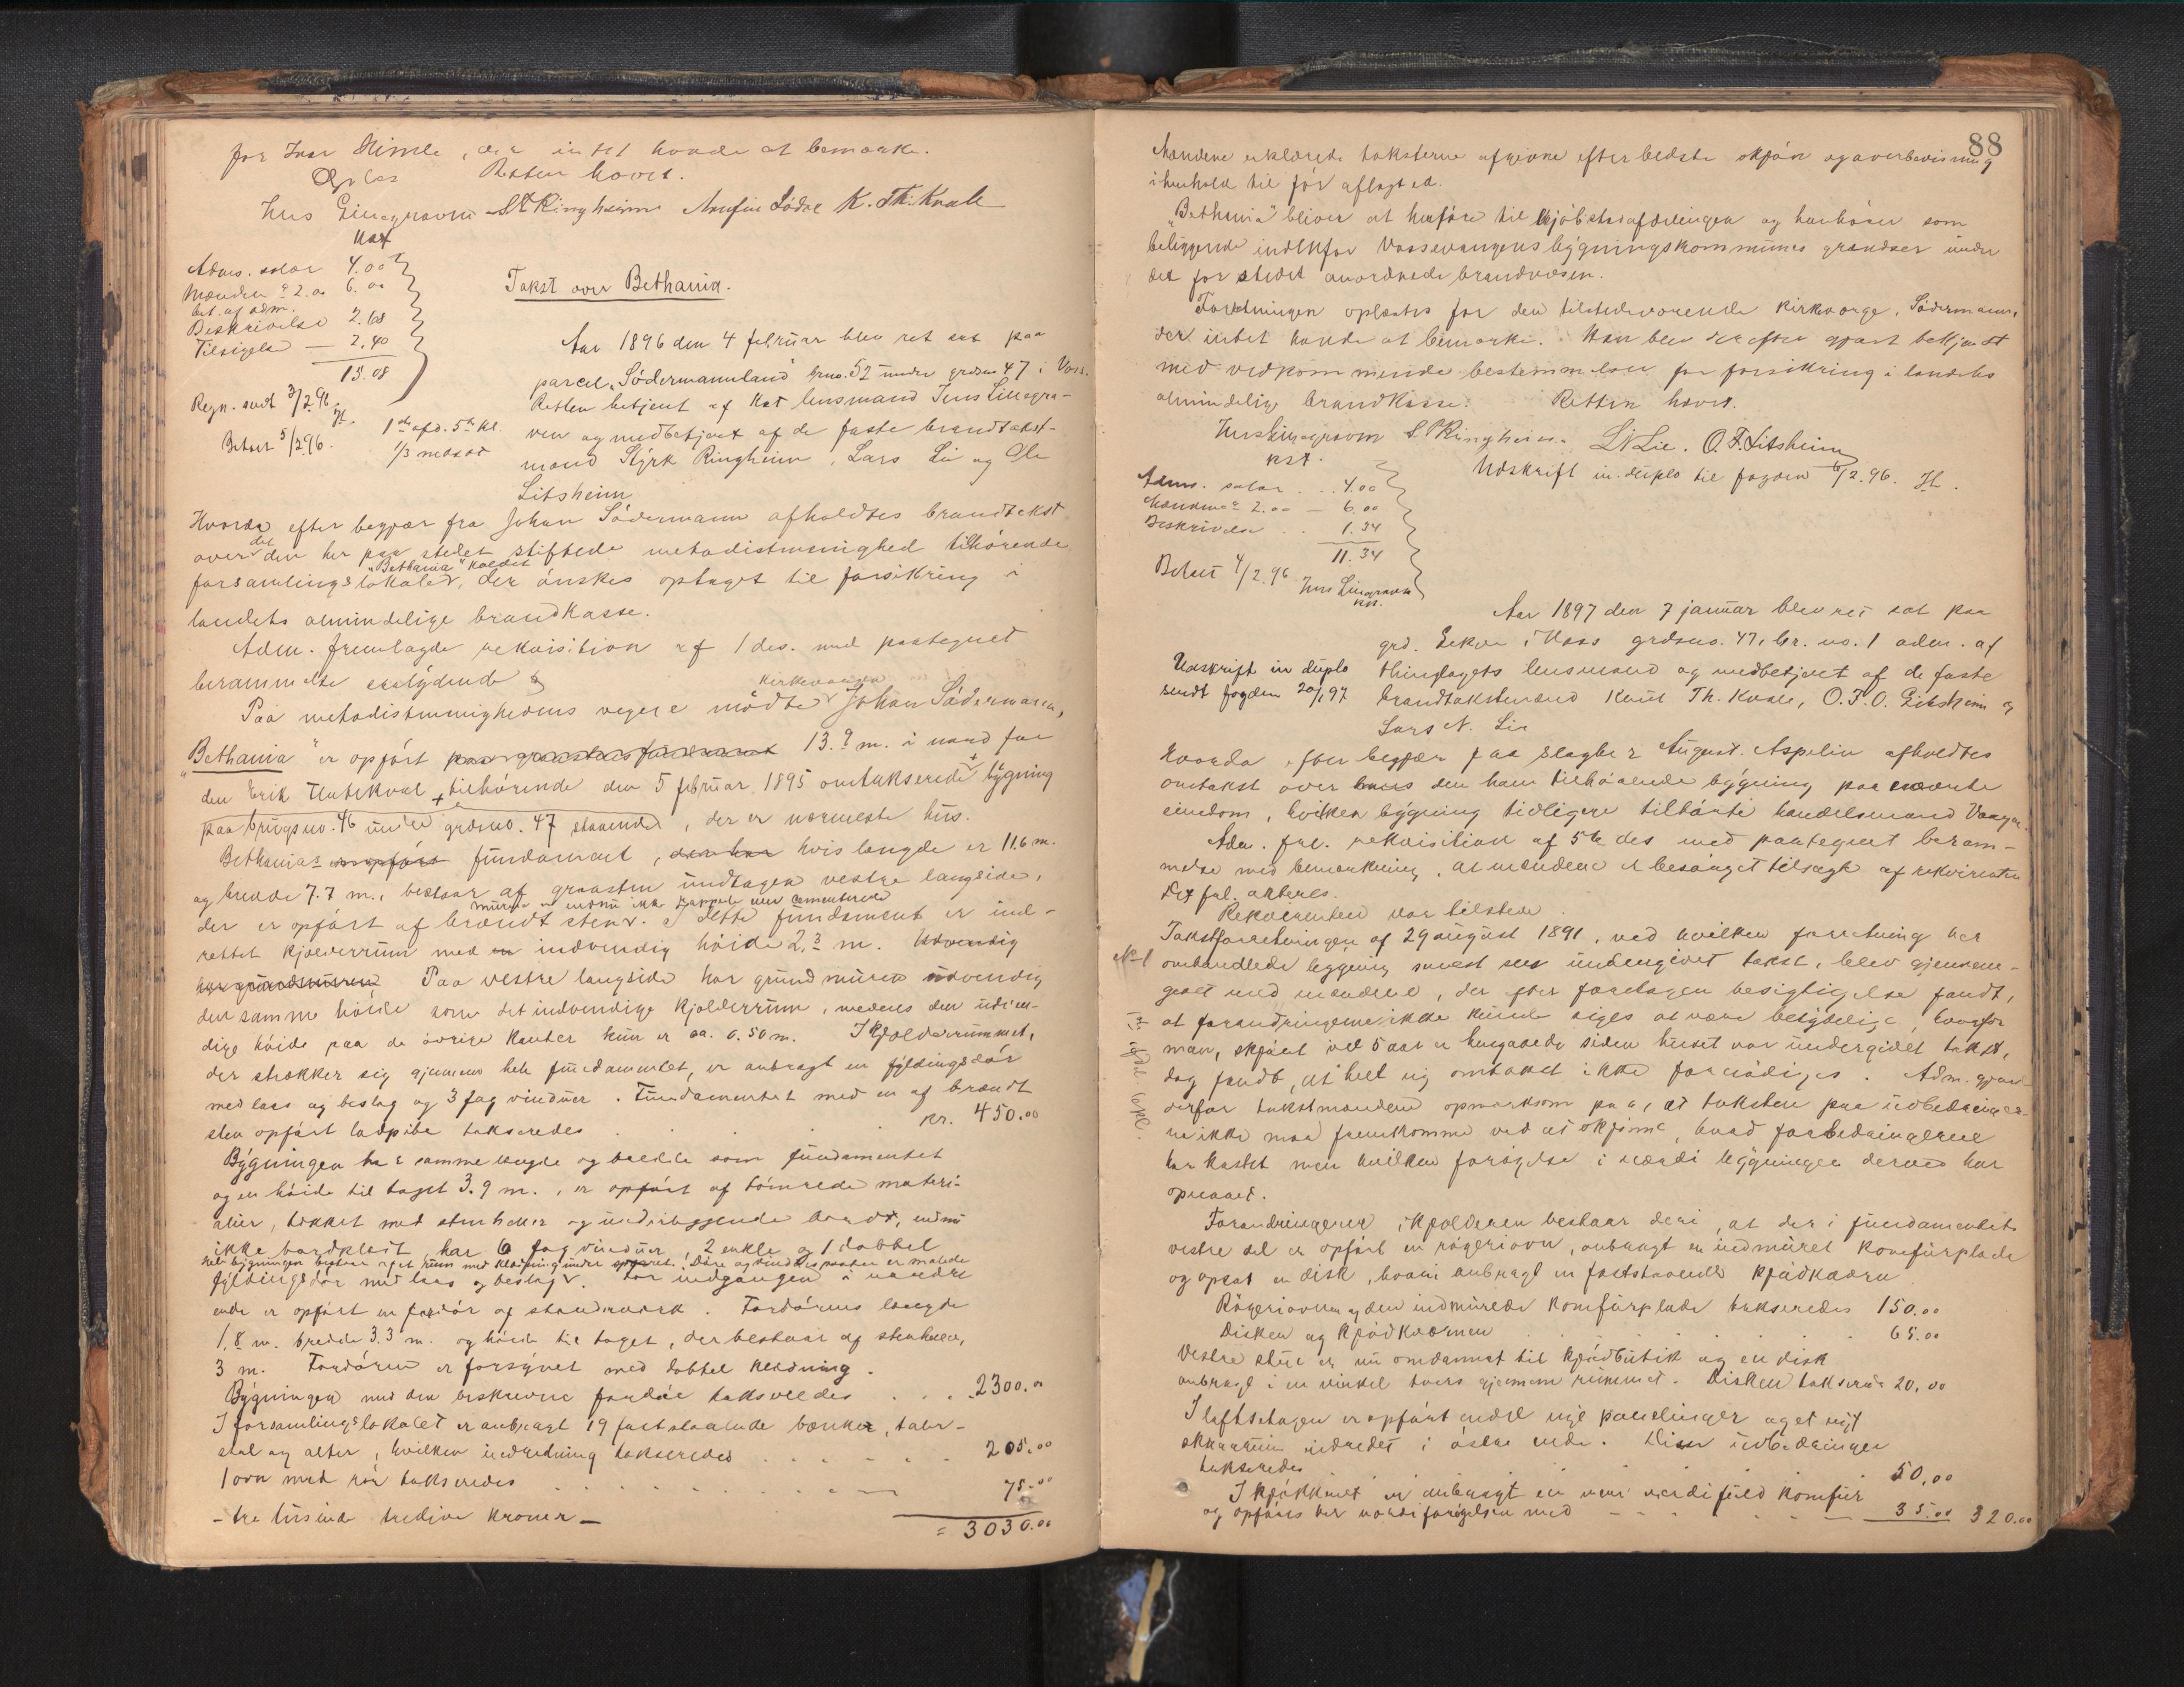 for Ivar Himle, der intet havde at bemærke.
Oplæst Retten hævet.
Jens Lillegraven S L Ringheim Arnfin Lödve K. Th. Kvale
kst
Adms. salær 4.00
Mænden à 2.00 6.00
bet. af adm.
Beskrivelse 2.68
Tilsigelse — 2.40
15.08
Regn. sendt 3/2 96.
Betalt 5/2 96.
1ste afd. 5te kl.
1/3 maxad
Takst over Bethania.
Aar 1896 den 4 februar blev ret sat paa
parcel „Södermannland" brno. 52 under grdsno 47 i Voss.
Retten betjent af kst lensmand Jens Lillegra-
ven og medbetjent af de faste brandtakst-
mænd Styrk Ringheim, Lars Lie og Ole
Litsheim
Hvorda efter begjær fra Johan Södermann afholdtes brandtakst
over det den her paa stedet stiftede metodistmenighed tilhörende
„Bethania" kaldet
forsamlingslokale, der önskes optaget til forsikring i
landets almindelige brandkasse.
Adm. fremlagde rekvisition af 1 ds. med paategnet
berammelse saalydende
Paa metodistmenighedens vegne mödte kirkeværge Johan Södermann,
„Bethania" er opfört 13.9 m. i nord for
den Erik Uutskval tilhörende den 5 februar 1895 omtakserede bygning
paa brugsno. 46 under grdsno. 47 staaende, der er nærmeste hus.
Bethanias er opfört fundament, der har hvis længde er 11.6 m.
og bredde 7.7 m., bestaar af graasten undtagen vestre langside,
muren er endnu ikke rappet men cementeret
der er opfört af brændt sten. I dette fundament er ind-
rettet kjælderrum med en indvendig höide 2.3 m. Udvendig
har grundmuren Paa vestre langside har grundmuren udvendig
den samme höide som det indvendige kjælderrum, medens den udven-
dige höide paa de övrige kanter kun er ca. 0.50 m. I kjælderrummet,
der strækker sig gjennem hele fundamentet, er anbragt en fyldingsdör
med laas og beslag og 3 fag vinduer. Fundamentet med en af brændt
sten opfört ladpibe takseredes . . . kr. 450.00
Bygningen har samme længde og bredde som fundamentet
og en höide til taget 3.9 m., er opfört af tömrede materi-
alier, tækket med stenheller og underliggende bord, endnu
ikke bordklædt, har 6 fag vinduer, 2 enkle og 1 dobbel
hele bygningen bestaar af et rum med klædning under Döre og vindueskarmer er malede
fyldingsdör med laas og beslag. For indgangen i nordre
ende er opfört en fordör af standerværk. Fordörens længde
1.8 m. bredde 3.3 m. og höide til taget, der bestaar af stenheller,
3 m. Fordören er forsynet med dobbel klædning.
Bygningen med den beskrevne fordör takseredes . . . . 2300.00
I forsamlingslokalet er anbragt 19 faststaaende bænker, taler-
stol og alter, hvilken indredning takseredes . . . . . 205.00
1 ovn med rör takseredes . . . . . . . 75.00
- tre tusinde tredive kroner — = 3030.00
88
Mændene erklærede taksterne afgivne efter bedste skjön og overbevisning
i henhold til för aflagt ed.
„Bethania" bliver at henföre til kjöbstadafdelingen og henhörer som
beliggende indenfor Vossevangens bygningskommunes grændser under
det for stedet anordnede brandvæsen.
Forretningen oplæstes for den tilstedeværende kirkeværge, Södermann,
der intet havde at bemærke. Han blev derefter gjort bekjendt
med vedkommende bestemmelser for forsikring i landets
almindelige brandkasse. Retten hævet.
Jens Lillegraven S. L Ringheim. L N Lie. O. F. Litsheim
kst.
Udskrift in duplo til fogden 6/2. 96. Jl.
Adms. salær . . 4.00
Mændene à 2.00 — 6.00
Beskrivelse . . 1.34
11.34
Betalt 4/2. 96. Jens Lillegraven
kst.
Aar 1897 den 7 januar blev ret sat paa
grd. Lekve i Voss grdsno. 47, br. no. 1 adm. af
Udskrift in duplo
sendt fogden 20/1 97
thinglagets lensmand og medbetjent af de faste
brandtakstmænd Knut Th. Kvale, O. F. O. Litsheim og
Lars N. Lie
Hvorda efter begjær fra slagter August Aspelin afholdtes
omtakst over den ham tilhörende bygning paa nævnte
eiendom, hvilken bygning tidligere tilhörte handelsmand Vangen.
Adm. frl. rekvisition af 5te ds med paategnet beram-
melse med bemærkning, at mændene er besörget tilsagt af rekvirenten
Det frl. akteres.
Rekvirenten var tilstede.
Takstforretningen af 29 august 1891, ved hvilken forretning her
No 1
omhandlede bygning senest er undergivet takst, blev gjennem-
gaaet med mændene, der efter foretagen besigtigelse fandt,
at forandringerne ikke kunde siges at være betydelige, hvorfor
man, skjönt vel 5 aar er hengaaede siden huset var undergivet takst,
dog fandt, at helt ny omtakst ikke fornödiges. Adm. gjorde
1ste afdel. 6 kl.
derfor takstmændene opmærksom paa, at taksten paa udbedringer-
ne ikke maa fremkomme ved at skjönne, hvad forbedringerne
har kostet men hvilken forögelse i værdi bygningen derved har
opnaaet.
Forandringerne i kjælderen bestaar deri, at der i fundamentets
vestre del er opfört en rögeriovn, anbragt en indmuret komfurplade
og opsat en disk, hvori anbragt en faststaaende kjödkværn
Rögeriovnen og den indmurede komfurplade takseredes 150.00
Disken og kjödkværnen . . . . . 65.00
Vestre stue er nu omdannet til kjödbutik og en disk
anbragt i en vinkel tvers gjennem rummet. Disken takseredes 20.00
I loftsetagen er opfört endel nye panelinger og et nyt
skraarum indredet i östre ende. Disse udbedringer
takseredes . . . . . 50.00
I kjökkenet er anbragt en mere værdifuld komfur
og opföres her værdiforögelsen med . . . 35.00 320.00